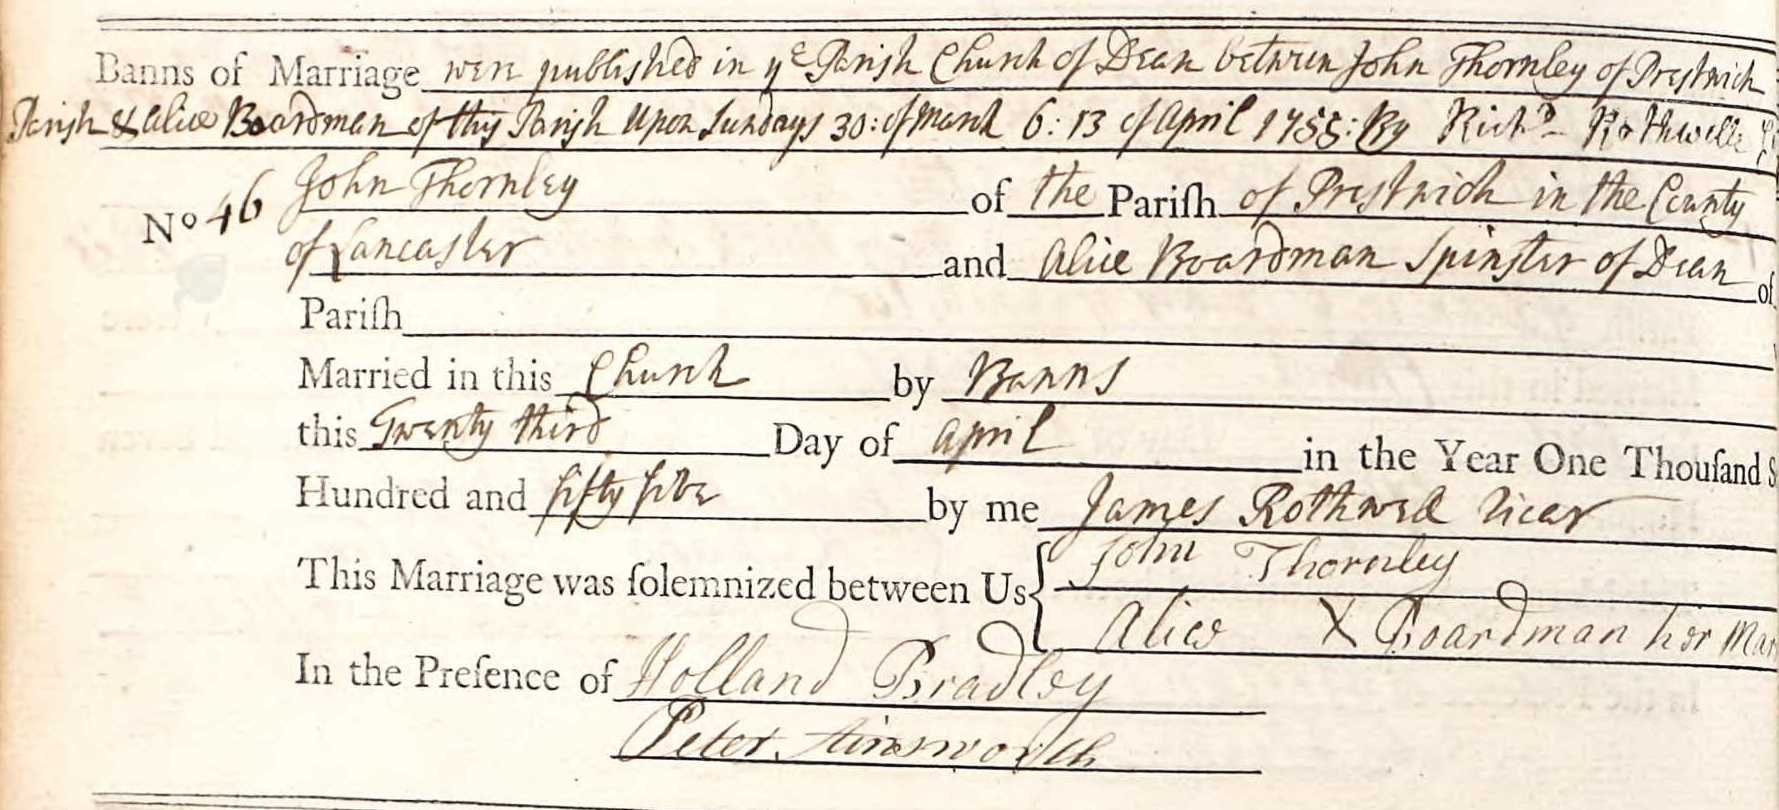 Banns of Marriage were published in yᵉ Parish Church of Dean between John Thornley of Prestwich
Parish & Alice Boardman of this Parish Upon Sundays 30: of March 6: 13 of April 1755: By Richᵈ Rothwell
Nº 46 John Thornley of the Pariſh of Prestwich in the County
of Lancaster and Alice Boardman Spinster of Dean of
Pariſh
Married in this Church by Banns
this Twenty third Day of April in the Year One Thouſand S
Hundred and fifty five by me James Rothwell Vicar
This Marriage was ſolemnized between Us John Thornley
Alice X Boardman her Mar
In the Preſence of Holland Bradley
Peter Ainsworth